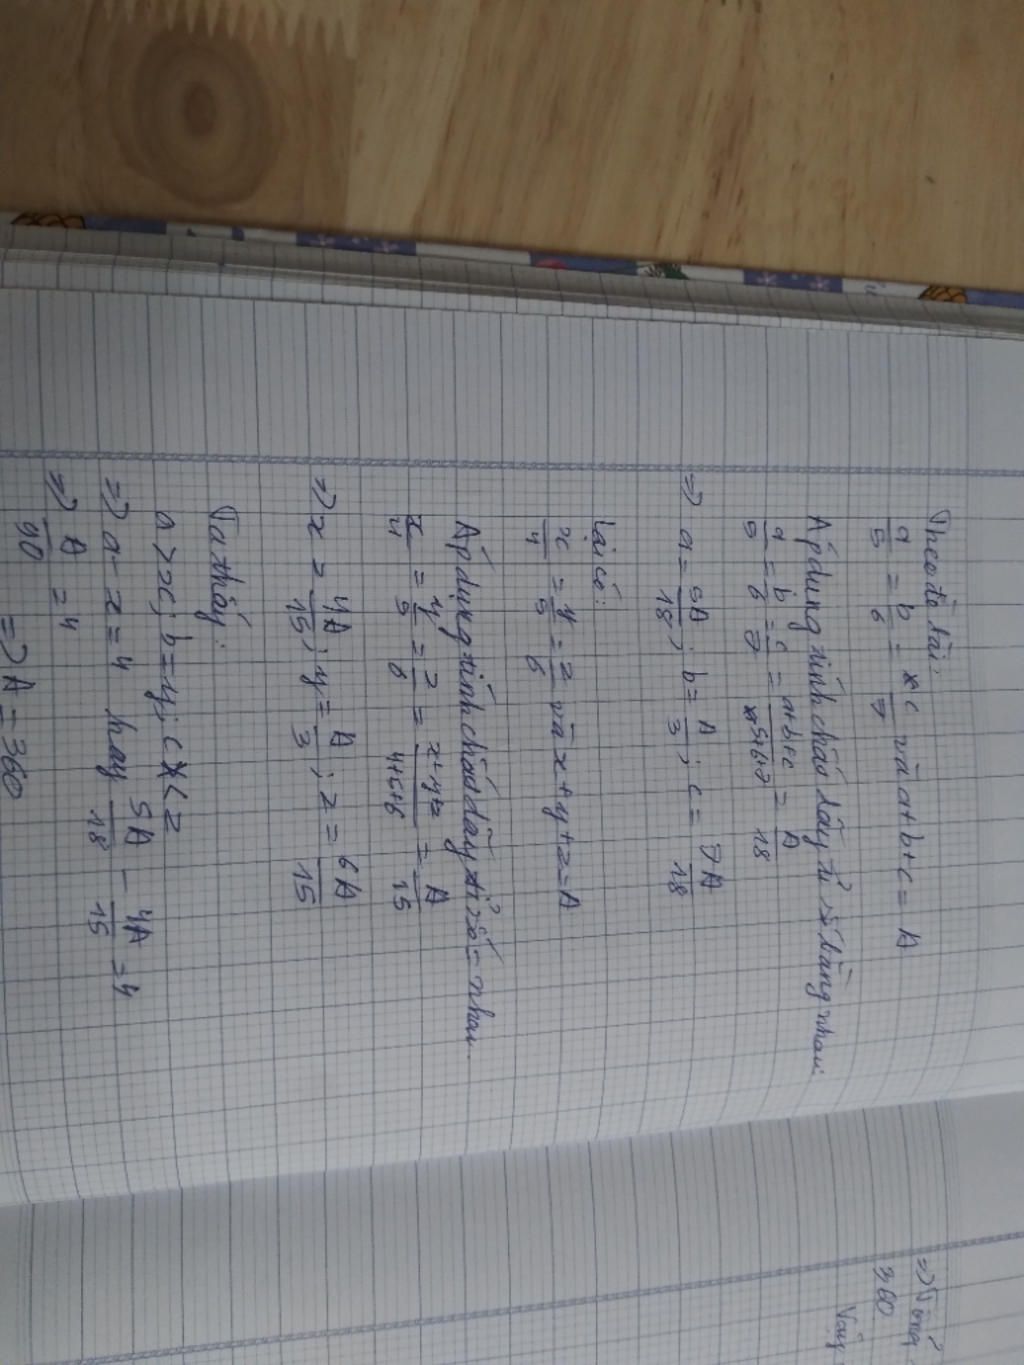 Theo đề bài:
a/5 = b/6 = c/7 và a+b+c = A
Áp dụng tính chất dãy tỉ số bằng nhau:
a/5 = b/6 = c/7 = a+b+c/5+6+7 = A/18
=> a = 5A/18; b = A/3; c = 7A/18
Lại có:
x/4 = y/5 = z/6 và x+y+z = A
Áp dụng tính chất dãy tỉ số = nhau
x/4 = y/5 = z/6 = x+y+z/4+5+6 = A/15
=> x = 4A/15; y = A/3; z = 6A/15
Ta thấy:
a > x; b = y; c < z
=> a - x = 4 hay 5A/18 - 4A/15 = 4
=> A/90 = 4
=> A = 360
=> Tổng
360
Vậy